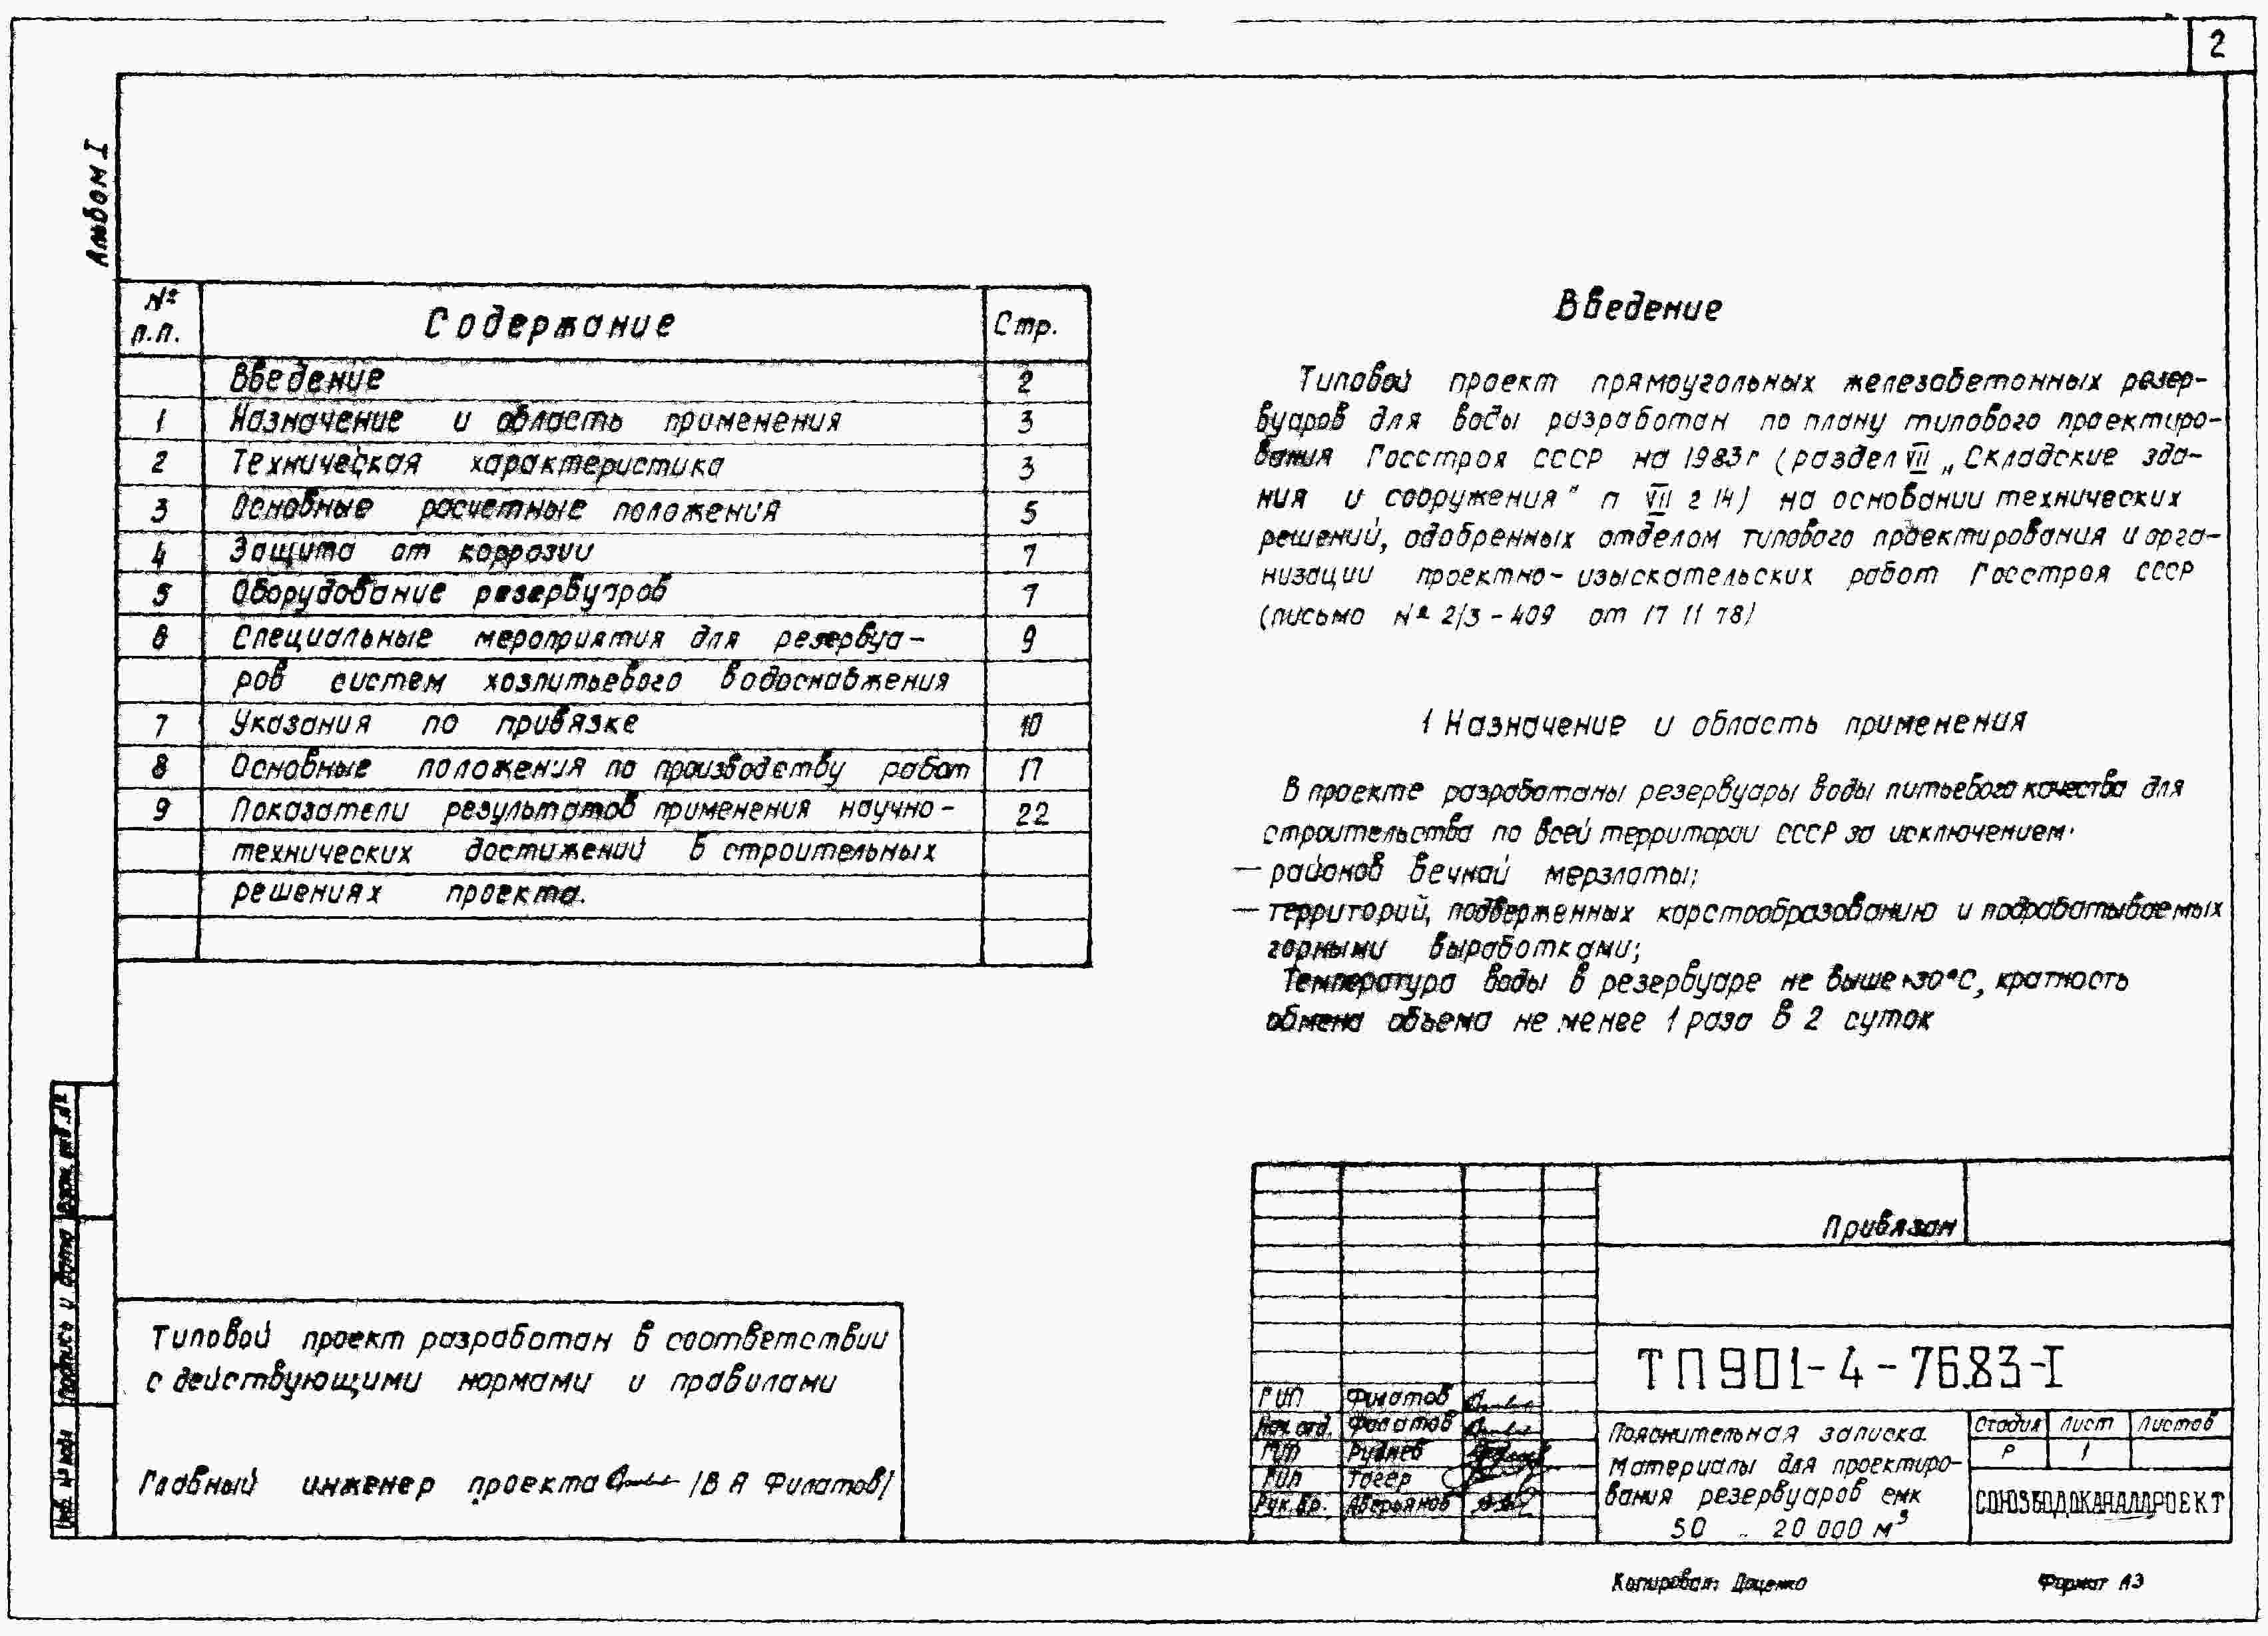 2
Альбом I
№ п.п. Содержание Стр.
Введение 2
1 Назначение и область применения 3
2 Техническая характеристика 3
3 Основные расчетные положения 5
4 Защита от коррозии 7
5 Оборудование резервуаров 7
6 Специальные мероприятия для резервуа- 9
ров систем хозпитьевого водоснабжения
7 Указания по привязке 10
8 Основные положения по производству работ 17
9 Показатели результатов применения научно- 22
технических достижений в строительных
решениях проекта.
Типовой проект разработан в соответствии
с действующими нормами и правилами
Главный инженер проекта /В А Филатов/
Введение
Типовой проект прямоугольных железобетонных резер-
вуаров для воды разработан по плану типового проектиро-
вания Госстроя СССР на 1983г (раздел VII „Складские зда-
ния и сооружения" п VII 2 14) на основании технических
решений, одобренных отделом типового проектирования и орга-
низации проектно-изыскательских работ Госстроя СССР
(письмо № 2/3-409 от 17 11 78)
1 Назначение и область применения
В проекте разработаны резервуары воды питьевого качества для
строительства по всей территории СССР за исключением:
— районов вечной мерзлоты;
— территорий, подверженных карстообразованию и подрабатываемых
горными выработками;
Температура воды в резервуаре не выше +30°С, кратность
обмена объема не менее 1 раза в 2 суток
Привязан
ТП901-4-76.83-I
ГИП Филатов
Нач. отд. Филатов
ГИП Руднев
ГИП Тагер
Рук. бр. Аверьянов
Пояснительная записка
Материалы для проектиро-
вания резервуаров емк
50 .. 20 000 м³
Стадия Лист Листов
Р 1
СОЮЗВОДОКАНАЛПРОЕКТ
Инв. № подл Подпись и дата Взам. инв. №
Копировал: Доценко
Формат А3